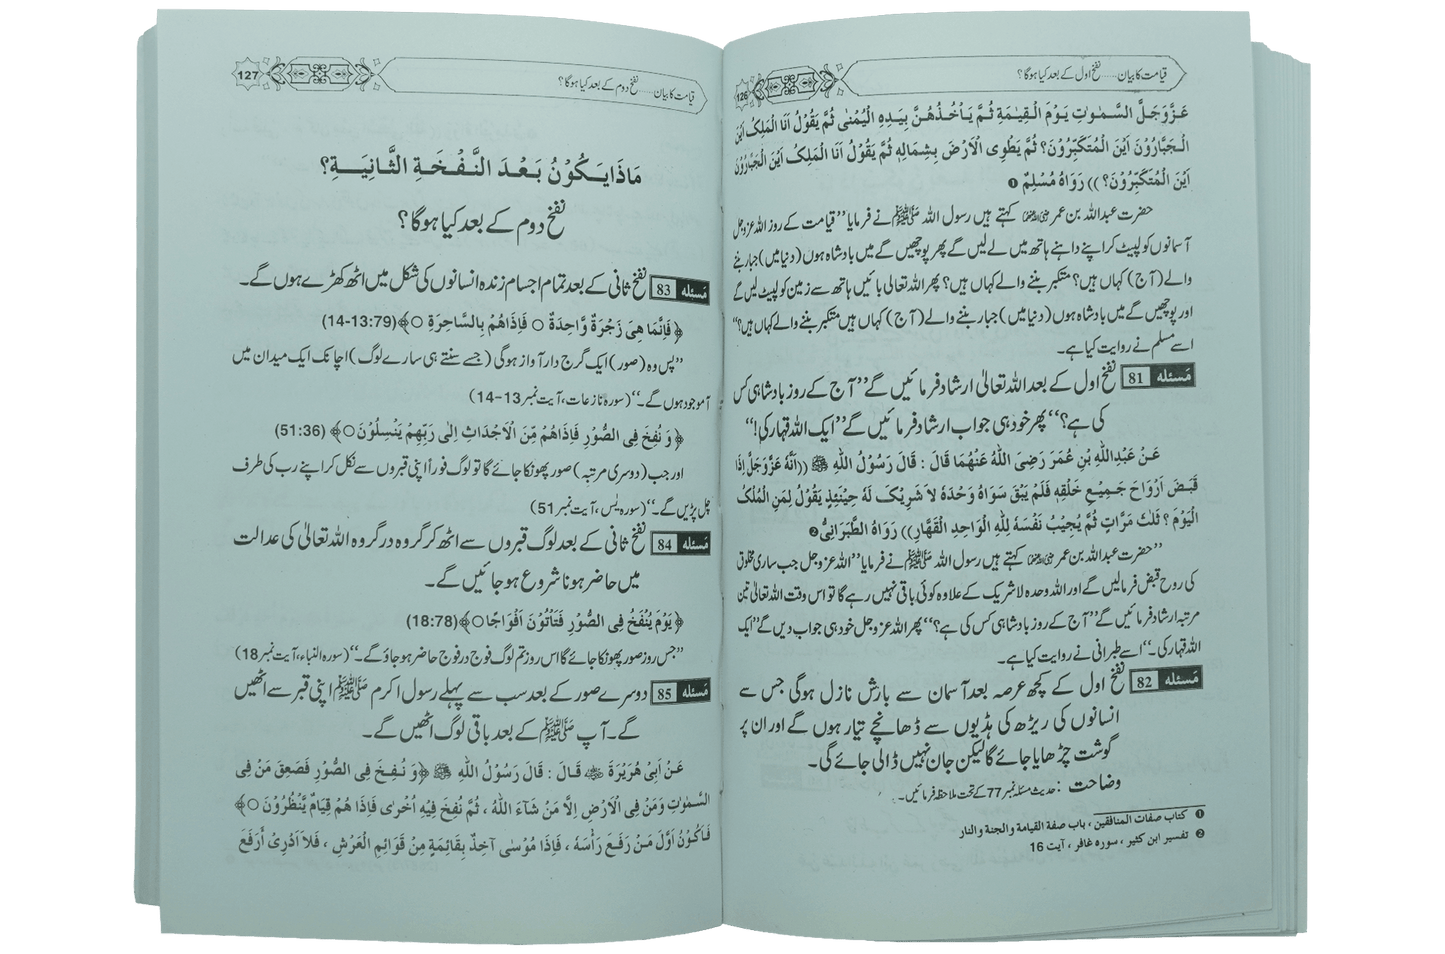 قیامت کا بیان ..... نفخ اول کے بعد کیا ہوگا؟
126
عَزَّوَجَلَّ السَّمٰوٰتِ يَوْمَ الْقِيٰمَةِ ثُمَّ يَأْخُذُهُنَّ بِيَدِهِ الْيُمْنٰى ثُمَّ يَقُوْلُ اَنَا الْمَلِكُ اَيْنَ
الْجَبَّارُوْنَ اَيْنَ الْمُتَكَبِّرُوْنَ؟ ثُمَّ يَطْوِى الْاَرْضَ بِشِمَالِهٖ ثُمَّ يَقُوْلُ اَنَا الْمَلِكُ اَيْنَ الْجَبَّارُوْنَ
اَيْنَ الْمُتَكَبِّرُوْنَ؟ )) رَوَاهُ مُسْلِمٌ ❶
حضرت عبداللہ بن عمر رضی اللہ عنہما کہتے ہیں رسول اللہ ﷺ نے فرمایا ’’قیامت کے روز اللہ عزوجل
آسمانوں کو لپیٹ کر اپنے داہنے ہاتھ میں لے لیں گے پھر پوچھیں گے میں بادشاہ ہوں (دنیا میں) جبار بننے
والے (آج) کہاں ہیں؟ متکبر بننے والے کہاں ہیں؟ پھر اللہ تعالیٰ بائیں ہاتھ سے زمین کو لپیٹ لیں گے
اور پوچھیں گے میں بادشاہ ہوں (دنیا میں) جبار بننے والے (آج) کہاں ہیں متکبر بننے والے کہاں ہیں؟‘‘
اسے مسلم نے روایت کیا ہے۔
مَسئله 81 نفخ اول کے بعد اللہ تعالیٰ ارشاد فرمائیں گے ’’آج کے روز بادشاہی کس
کی ہے؟‘‘ پھر خود ہی جواب ارشاد فرمائیں گے ’’ایک اللہ قہار کی!‘‘
عَنْ عَبْدِاللهِ بْنِ عُمَرَ رَضِىَ اللهُ عَنْهُمَا قَالَ : قَالَ رَسُوْلُ اللهِ ﷺ ((اَنَّهُ عَزَّوَجَلَّ اِذَا
قَبَضَ اَرْوَاحَ جَمِيْعِ خَلْقِهٖ فَلَمْ يَبْقَ سِوَاهُ وَحْدَهُ لاَ شَرِيْكَ لَهُ حِيْنَئِذٍ يَقُوْلُ لِمَنِ الْمُلْكُ
الْيَوْمَ ؟ ثَلٰثَ مَرَّاتٍ ثُمَّ يُجِيْبُ نَفْسَهُ لِلّٰهِ الْوَاحِدِ الْقَهَّارِ)) رَوَاهُ الطَّبَرَانِىُّ ❷
’’حضرت عبداللہ بن عمر رضی اللہ عنہما کہتے ہیں رسول اللہ ﷺ نے فرمایا ’’اللہ عزوجل جب ساری مخلوق
کی روح قبض فرمالیں گے اور اللہ وحدہ لاشریک کے علاوہ کوئی باقی نہیں رہے گا تو اس وقت اللہ تعالیٰ تین
مرتبہ ارشاد فرمائیں گے ’’آج کے روز بادشاہی کس کی ہے؟‘‘ پھر اللہ عزوجل خود ہی جواب دیں گے ’’ایک
اللہ قہار کی۔‘‘ اسے طبرانی نے روایت کیا ہے۔
مَسئله 82 نفخ اول کے کچھ عرصہ بعد آسمان سے بارش نازل ہوگی جس سے
انسانوں کی ریڑھ کی ہڈیوں سے ڈھانچے تیار ہوں گے اور ان پر
گوشت چڑھایا جائے گا لیکن جان نہیں ڈالی جائے گی۔
وضاحت : حدیث مسئلہ نمبر 77 کے تحت ملاحظہ فرمائیں۔
❶ کتاب صفات المنافقین ، باب صفة القیامة والجنة والنار
❷ تفسیر ابن کثیر ، سوره غافر ، آیت 16
قیامت کا بیان ..... نفخ دوم کے بعد کیا ہوگا؟
127
مَاذَا يَكُوْنُ بَعْدَ النَّفْخَةِ الثَّانِيَةِ؟
نفخ دوم کے بعد کیا ہوگا؟
مَسئله 83 نفخ ثانی کے بعد تمام اجسام زندہ انسانوں کی شکل میں اٹھ کھڑے ہوں گے۔
﴿ فَاِنَّمَا هِىَ زَجْرَةٌ وَّاحِدَةٌ ○ فَاِذَاهُمْ بِالسَّاهِرَةِ ○﴾(14-13:79)
’’پس وہ (صور) ایک گرج دار آواز ہوگی (جسے سنتے ہی سارے لوگ) اچانک ایک میدان میں
آموجود ہوں گے۔‘‘ (سورہ نازعات، آیت نمبر 13-14)
﴿ وَ نُفِخَ فِى الصُّوْرِ فَاِذَاهُمْ مِّنَ الْاَجْدَاثِ اِلٰى رَبِّهِمْ يَنْسِلُوْنَ○﴾ (51:36)
اور جب (دوسری مرتبہ) صور پھونکا جائے گا تو لوگ فوراً اپنی قبروں سے نکل کر اپنے رب کی طرف
چل پڑیں گے۔‘‘ (سورہ یٰس، آیت نمبر 51)
مَسئله 84 نفخ ثانی کے بعد لوگ قبروں سے اٹھ کر گروہ در گروہ اللہ تعالیٰ کی عدالت
میں حاضر ہونا شروع ہو جائیں گے۔
﴿ يَوْمَ يُنْفَخُ فِى الصُّوْرِ فَتَأْتُوْنَ اَفْوَاجًا○﴾(18:78)
’’جس روز صور پھونکا جائے گا اس روز تم لوگ فوج در فوج حاضر ہو جاؤ گے۔‘‘ (سورہ النباء، آیت نمبر 18)
مَسئله 85 دوسرے صور کے بعد سب سے پہلے رسول اکرم ﷺ اپنی قبر سے اٹھیں
گے۔ آپ ﷺ کے بعد باقی لوگ اٹھیں گے۔
عَنْ اَبِىْ هُرَيْرَةَ ؓ قَالَ : قَالَ رَسُوْلُ اللهِ ﷺ ﴿وَ نُفِخَ فِى الصُّوْرِ فَصَعِقَ مَنْ فِى
السَّمٰوٰتِ وَمَنْ فِى الْاَرْضِ اِلَّا مَنْ شَآءَ اللهُ ، ثُمَّ نُفِخَ فِيْهِ اُخْرٰى فَاِذَا هُمْ قِيَامٌ يَّنْظُرُوْنَ ○﴾
فَاَكُوْنُ اَوَّلَ مَنْ رَفَعَ رَأْسَهُ ، فَاِذَا مُوْسٰى آخِذٌ بِقَائِمَةٍ مِنْ قَوَائِمِ الْعَرْشِ ، فَلاَ اَدْرِىْ أَرَفَعَ